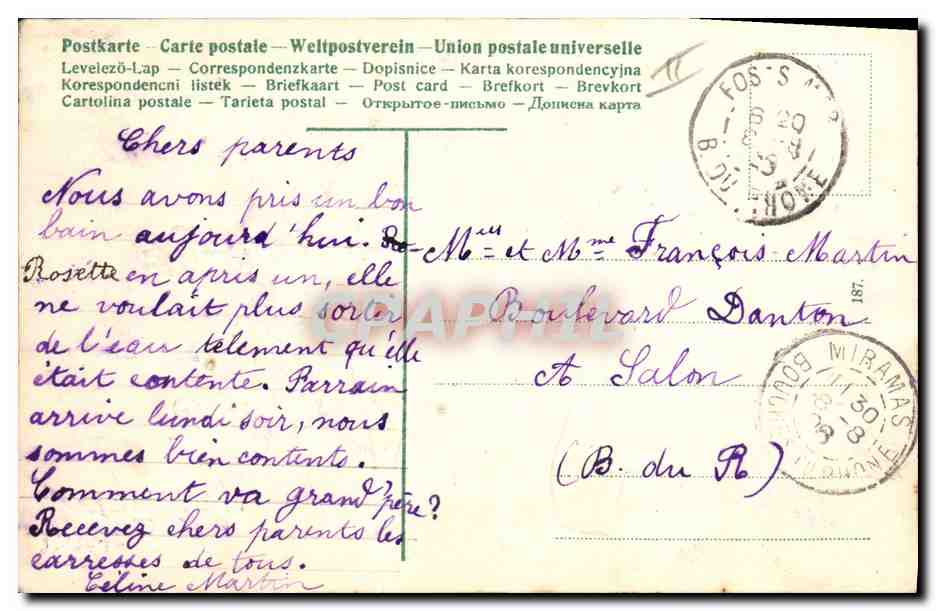 Postkarte – Carte postale – Weltpostverein – Union postale universelle
Levelező-Lap – Correspondenzkarte – Dopisnice – Karta korespondencyjna
Korespondencni listek – Briefkaart – Post card – Brefkort – Brevkort
Cartolina postale – Tarieta postal – Открытое-письмо – Дописна карта
Chers parents
Nous avons pris un bon
bain aujourd'hui. Ro-
Rosette en apris un, elle
ne voulait plus sorter
de l'eau telement qu'elle
était contente. Parrain
arrive lundi soir, nous
sommes bien contents.
Comment va grand'père?
Recevez chers parents les
carresses de tous.
Céline Martin
Mr et Mme François Martin
Boulevard Danton
A Salon
(B. du R)
187.
FOS-S-MER
B. DU RHONE
MIRAMAS
BOUCHES DU RHONE
CPAPHIL